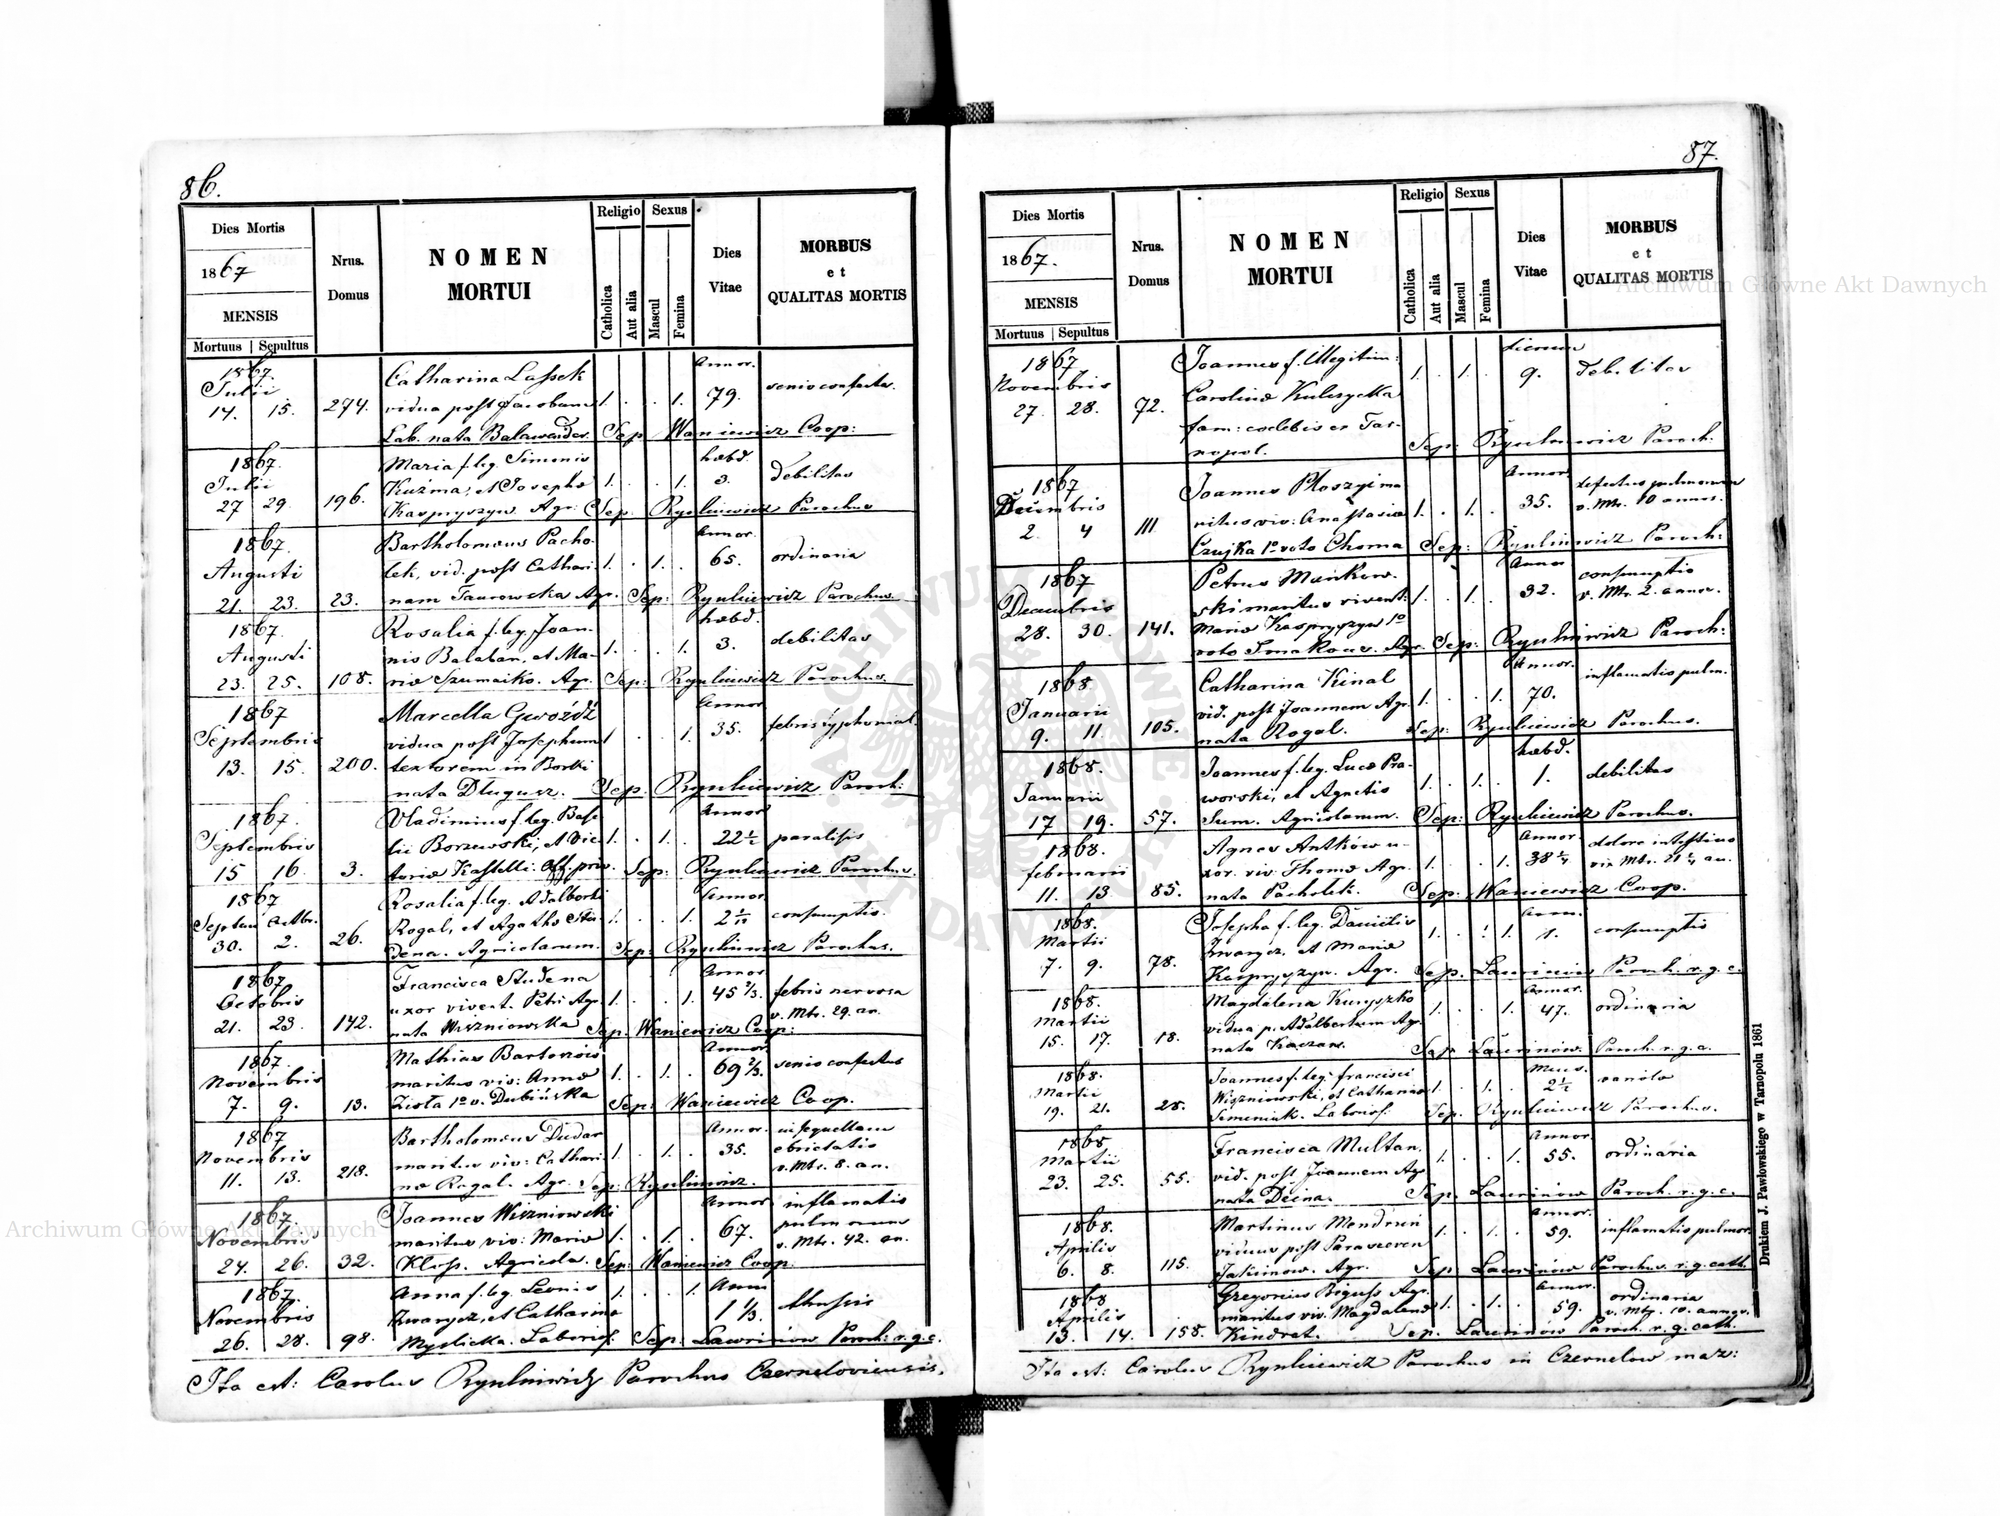 86.
Dies Mortis
1867
MENSIS
Mortuus Sepultus
Nrus.
Domus
NOMEN
MORTUI
Religio
Catholica
Aut alia
Sexus
Mascul
Femina
Dies
Vitae
MORBUS
et
QUALITAS MORTIS
1867. Annor.
Julii Catharina Lassek
14. 15. 274. vidua post Jacobum 1. . . 1. 79. senio confecta.
Lab. nata Balawender Sep. Waniewicz Coop:
1867. Maria f. leg. Simonis hebd.
Julii Kuźma, et Josepha 1. . . 1. 3. debilitas
27 29. 196. Kaspryszyn. Agr. Sep: Rynkiewicz Parochus
1867. Bartholomæus Pacho- Annor.
Augusti lek, vid. post Cathari- 1. . 1. . 65. ordinaria
21. 23. 23. nam Taurowska Agr. Sep: Rynkiewicz Parochus.
1867. Rosalia f. leg. Joan- hebd.
Augusti nis Balaban, et Ma- 1. . . 1. 3. debilitas
23. 25. 108. riæ Szumaiko. Agr. Sep: Rynkiewicz Parochus.
1867 Marcella Gwoźdź Annor
Septembris vidua post Josephum 1 . . 1. 35. febris
13. 15. 200. textorem in Borki
nata Długusz. Sep. Rynkiewicz Paroch:
1867. Vladimirus f. leg. Basi- Annor
Septembris lii Borzewski, et Vic- 1. . 1. . 22½ paralisis
15 16. 3. toriæ Kastelli. Off. priv. Sep: Rynkiewicz Parochus.
1867 Rosalia f. leg. Adalberti Annor
Septem Octbr. Rogal, et Agatha Stu- 1. . . 1. 2 consumptio.
30. 2. 26. dena. Agricolarum. Sep: Rynkiewicz Parochus.
1867 Francisca Studena Annor
Octobris uxor vivent. Petri Agr. 1. . . 1. 45⅔. febris nervosa
21. 23. 142. nata Wiszniowska Sep. Waniewicz Coop: v. Mtr. 29. an.
1867. Mathias Annor.
Novembris maritus viv: Annæ 1. . 1. . 69⅔. senio confectus
7. 9. 13. Zięta 1º v. Dubińska Sep: Waniewicz Coop.
1867 Bartholomæus Dudar Annor. in sequellam
Novembris maritus viv: Cathari- 1. . 1. . 35. ebrietatis
11. 13. 218. næ Rogal. Agr. Sep: Rynkiewicz. v. Mtr. 8. an.
1867. Joannes Wiszniowski Annor inflamatio
Novembris maritus viv: Mariæ 1. . 1. . 67. pulmonum
24. 26. 32. Kłos. Agricola. Sep: Waniewicz Coop. v. Mtr. 42. an.
1867. Anna f. leg. Leonis 1. . . 1. Anni
Novembris Zwarycz, et Catharinæ 1⅓. thussis
26. 28. 98. Myslicka. Laborios. Sep: Lawrinow Paroch: r. g. c.
Ita est: Carolus Rynkiewicz Parochus Czerneloviensis.
87.
Dies Mortis
1867.
MENSIS
Mortuus Sepultus
Nrus.
Domus
NOMEN
MORTUI
Religio
Catholica
Aut alia
Sexus
Mascul
Femina
Dies
Vitae
MORBUS
et
QUALITAS MORTIS
1867 Joannes f. illegitim: dierum
Novembris 1. . 1. . 9. debilitas
27. 28. 72. Carolinæ Kulczycka
fam: coelebis ex Tar-
nopol. Sep: Rynkiewicz Paroch:
1867 Joannes Płoszyi ma- Annor. defectus pulmonum
Decembris ritus viv: Anastasiæ 1. . 1. . 35. v. Mtr. 10 annor.
2. 4 111 Czujka 1º voto Choma Sep: Rynkiewicz Paroch:
1867 Petrus Mańkow- Annor consumptio
Decembris ski maritus vivent: 1. . 1. . 32. v. Mtr. 2. annor.
28. 30. 141. Mariæ Kaspryszyn 1º
voto Agr. Sep: Rynkiewicz Paroch:
1868. Catharina Kinal Annor. inflamatio pulm.
Januarii vid. post Joannem Agr. 1. . . 1. 70.
9. 11. 105. nata Rogal. Sep: Rynkiewicz Parochus.
1868. Joannes f. leg. Lucæ Pra- hebd.
Januarii worski, et Agnetis 1. . 1. . 1. debilitas
17 19. 57. Sum. Agricolarum. Sep: Rynkiewicz Parochus.
1868. Agnes Antków u- Annor dolore intestino
februarii xor. viv. Thomæ Agr. 1. . . 1. 38¼ viv. Mtr. 21¼ an.
11. 13 85. nata Pacholek. Sep: Waniewicz Coop.
1868. Josepha f. leg. Danielis Ann.
Martii Zwarycz, et Mariæ 1. . . 1. 1. consumptio
7. 9. 78. Kaspryszyn. Agr. Sep. Lawrinow Paroch. r. g. c.
1868. Magdalena Kunyszko Annor.
Martii vidua p. Adalbertum Agr. 1. . . 1. 47. ordinaria
15. 17. 18. nata Sep Lawrinów. Paroch. r. g. c.
1868. Joannes f. leg. francisci Mens.
Martii Wiszniowski, et Catharinæ 1. . 1. . 2½ variola
19. 21. 28. Semeniuk. Laborios. Sep. Rynkiewicz Parochus.
1868 Francisca Multan. Annor.
Martii vid. post Joannem Agr 1. . . 1. 55. ordinaria
23. 25. 55. nata Sep. Lawrinów Paroch. r. g. c.
1868. Martinus Mendruń Annor.
Aprilis viduus post Parasceven 1. . 1. . 59. inflamatio pulmor.
6. 8. 115. Jakimow. Agr. Sep. Lawrinów Parochus. r. g. cath.
1868 Gregorius Agr. Annor. ordinaria
Aprilis maritus viv. Magdalenæ 1. . 1. . 59. v. Mtr. 10. annor.
13. 14. 158. Kindrat. Sep. Lawrinów Paroch. r. g. cath.
Ita est: Carolus Rynkiewicz Parochus in Czernelow maz:
Drukiem J. Pawłowskiego w Tarnopolu 1861
Archiwum Główne Akt Dawnych
Archiwum Główne Akt Dawnych
ARCHIWUM GŁÓWNE AKT DAWNYCH